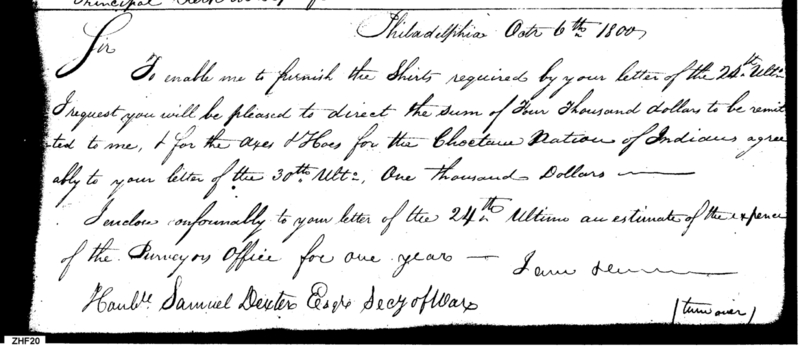 Principal Clerk
Philadelphia Octr 6th 1800
Sir
To enable me to furnish the Shirts required by your letter of the 24th Ulto
I request you will be pleased to direct the sum of Four Thousand dollars to be remit
ted to me, & for the axes & Hoes for the Choctaw Nation of Indians agree
ably to your letter of the 30th Ulto, One thousand Dollars —
I enclose conformably to your letter of the 24th Ultimo an estimate of the expence
of the Purveyors Office for one year — I am
Honble Samuel Dexter Esqr Secy of War
(turn over)
ZHF20